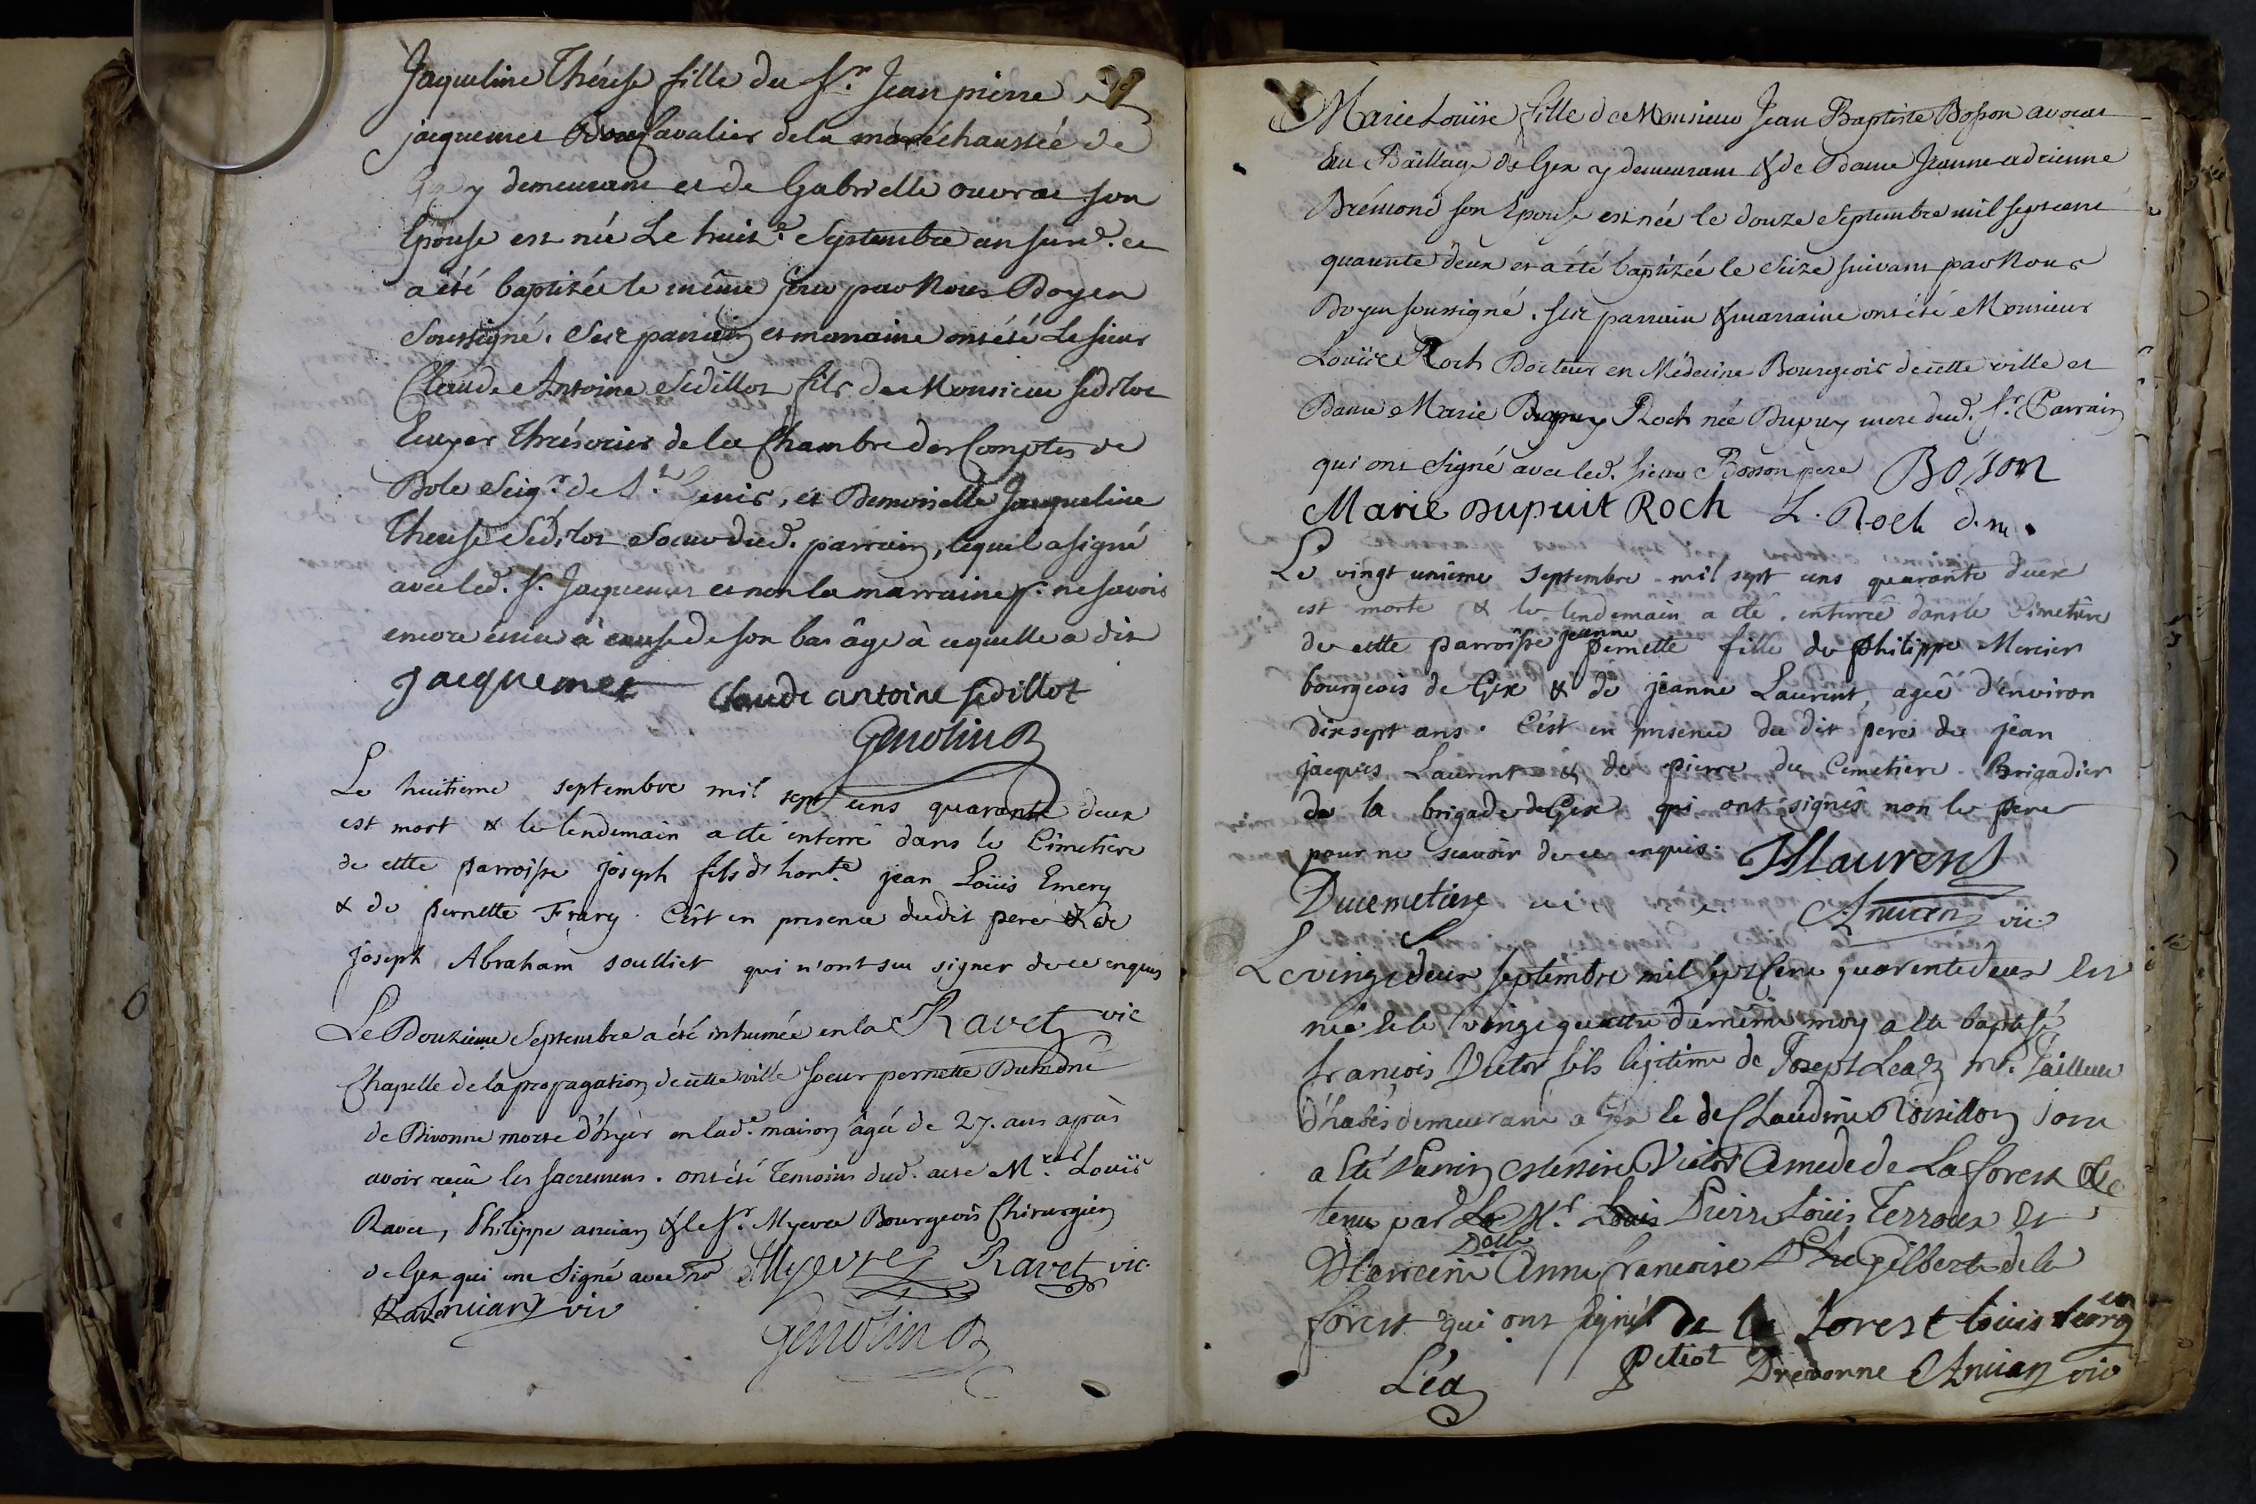 Jaqueline Thérese fille du Sr. Jean pierre
jacquemet Cavalier dela maréchaussée de
y demeurant et de Gabrielle ouvrat son
Epouse est née Le huite. Septembre an susd. et
a été baptizée le même jour par Nous Doyen
Soussigné. Ses parrain et marraine ont été Le sieur
Claude Antoine Sédillot fils de Monsieur Sedillot
Ecuyer Thrésorier de la Chambre des Comptes de
Dole Seigr. de St. Genis, et Demoiselle Jacqueline
Therese Sédillot Soeur dud. parrain, lequel a signé
avec led. Sr. Jaquemet et non la marraine pr. ne savoir
encore écrire à cause de son bas âge à ce quelle a dit
Jacquemet Claude antoine sedillot
Genolin D
Le huitieme septembre mil sept cens quarante deux
est mort & le lendemain a été enterré dans le Cimetière
de cette parroisse joseph fils d' honte. jean Loüis Emery
& de pernette Frary. C'est en presence dudit pere & de
joseph Abraham soulliet qui n'ont seu signer de ce enquis
Ravet vic
Le Douzieme Septembre a été inhumée en la
Chapelle de la propagation de cette ville soeur pernette Dumont
de Divonne morte d'hyer en lade. maison âgée de 27. ans après
avoir reçû les sacremens. ont été Temoins dud. acte Mrs. Louïs
Ravet, Philippe ancian & le Sr. Myevre Bourgeois Chirurgien
de Gex qui ont Signé avec no Myevre Ravet vic.
Ancian vic
Genolin D
Marie Louïse fille de Monsieur Jean Baptiste Bosson avocat
au Bailliage de Gex y demeurant & de Dame Jeanne adrienne
Brémond son Epouse est née le douze Septembre mil sept cent
quarente deux et a été baptizée le Seize suivant par Nous
Doyen soussigné. ses parrain & marraine ont été Monsieur
Louïs Roch Docteur en Médecine Bourgeois de cette ville et
Dame Marie Dupuy Roch née Dupuy mere dud. Sr. Parrain
qui ont signé avec led. sieur Bosson pere Boson
Marie Dupuit Roch L. Roch d.m.
Le vingt unième septembre mil sept cens quarante deux
est morte & le lendemain a été enterrée dans le Cimetière
de cette parroisse jeanne pernette fille de philippe Mercier
bourgeois de Gex & de jeanne Laurent, agée d'environ
dixsept ans. C'est en presence du dit pere de jean
jacques Laurent & de pierre du Cimetiere Brigadier
de la brigade de Gex qui ont signés non le pere
pour ne scavoir de ce enquis. JJLaurent
Ducimetiere Ancian vic
Le vingt deux septembre mil sept Cent quarente deux Est
né Et le vingt quattre du même moy a été baptisé
françois Victor fils legitime de Josept Leaz me. Tailleur
d'habis demeurant a Gex Et de Claudine Roisillon Son
a Eté Parrin Messire Victor Amede de La forest &
tenu par Mr. Pierre Loüis Terroux Et
Marreine Dlle Anne francoise gilberte de la
forest qui ont signés de la forest louis terroux
Léa petiot Drevonne Ancian vic